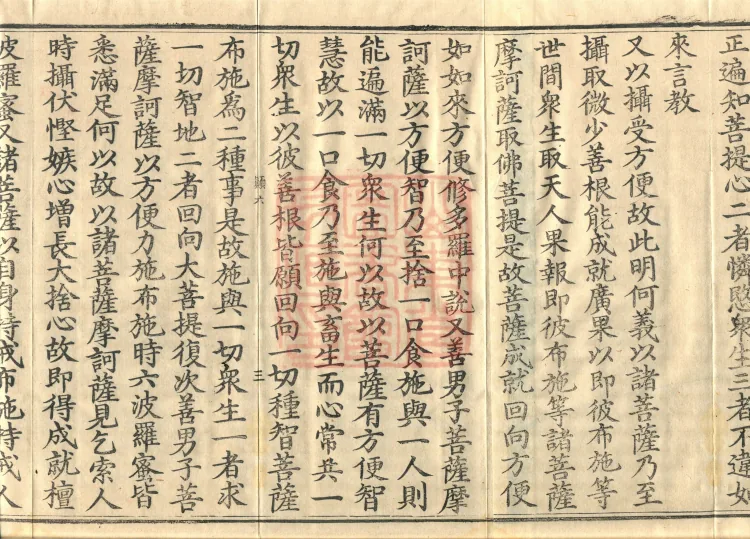 正遍知菩提心二者憐愍衆生三者不違如
來言教
又以攝受方便故此明何義以諸菩薩乃至
攝取微少善根能成就廣果以即彼布施等
世間衆生取天人果報即彼布施等諸菩薩
摩訶薩取佛菩提是故菩薩成就回向方便
如如來方便修多羅中說又善男子菩薩摩
訶薩以方便智乃至捨一口食施與一人則
能遍滿一切衆生何以故以菩薩有方便智
慧故以一口食乃至施與畜生而心常共一
切衆生以彼善根皆願回向一切種智菩薩
三
布施爲二種事是故施與一切衆生一者求
一切智地二者回向大菩提復次善男子菩
薩摩訶薩以方便力施布施時六波羅蜜皆
悉滿足何以故以諸菩薩摩訶薩見乞索人
時攝伏慳嫉心增長大捨心故即得成就檀
波羅蜜又諸菩薩以自身持戒布施持戒人